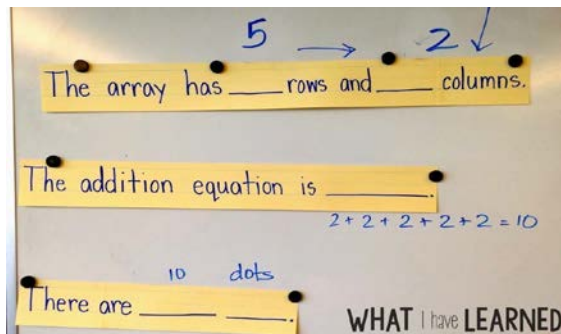 5 → 2 ↓
The array has ____ rows and ____ columns.
The addition equation is ________.
2 + 2 + 2 + 2 + 2 = 10
10 dots
There are ____ ____.
WHAT I have LEARNED